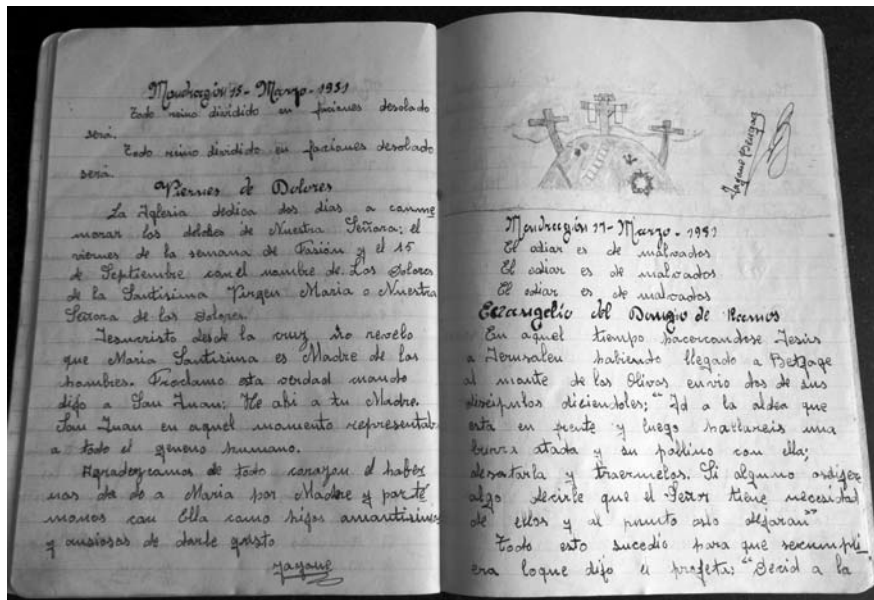 Mondragón 15 - Marzo - 1951
Todo reino dividido en faciones desolado
será.
Todo reino dividido en faciones desolado
será
Viernes de Dolores
La Iglesia dedica dos días a conme
morar los dolores de Nuestra Señora; el
viernes de la semana de Pasión y el 15
de Septiembre con el nombre de Los Dolores
de la Santísima Virgen Maria o Nuestra
Señora de los Dolores.
Jesucristo desde la cruz nos revelo
que Maria Santisima es Madre de los
hombres. Proclamo esta verdad cuando
dijo a San Juan: He ahi a tu Madre.
San Juan en aquel momento representab
a todo el genero humano.
Agradezcamos de todo corazon el haber
nos da do a Maria por Madre y porté
monos con Ella como hijos amantisimos
y ansiosos de darle gusto
Mondragón 17 - Marzo - 1951
El odiar es de malvados
El odiar es de malvados
El odiar es de malvados
Evangelio del Domgio de Ramos
En aquel tiempo hacercandose Jesús
a Jerusalen habiendo llegado a Betfage
al monte de los Olivos envio dos de sus
discipulos diciendoles; “Id a la aldea que
está en frente y luego hallareis una
burra atada y su pollino con ella;
desatarla y traermelos. Si alguno osdijere
algo decirle que el Señor tiene necesidad
de ellos y al punto oslo dejaran”
Todo esto sucedio para que secumpli
era loque dijo el profeta: “Decid a la